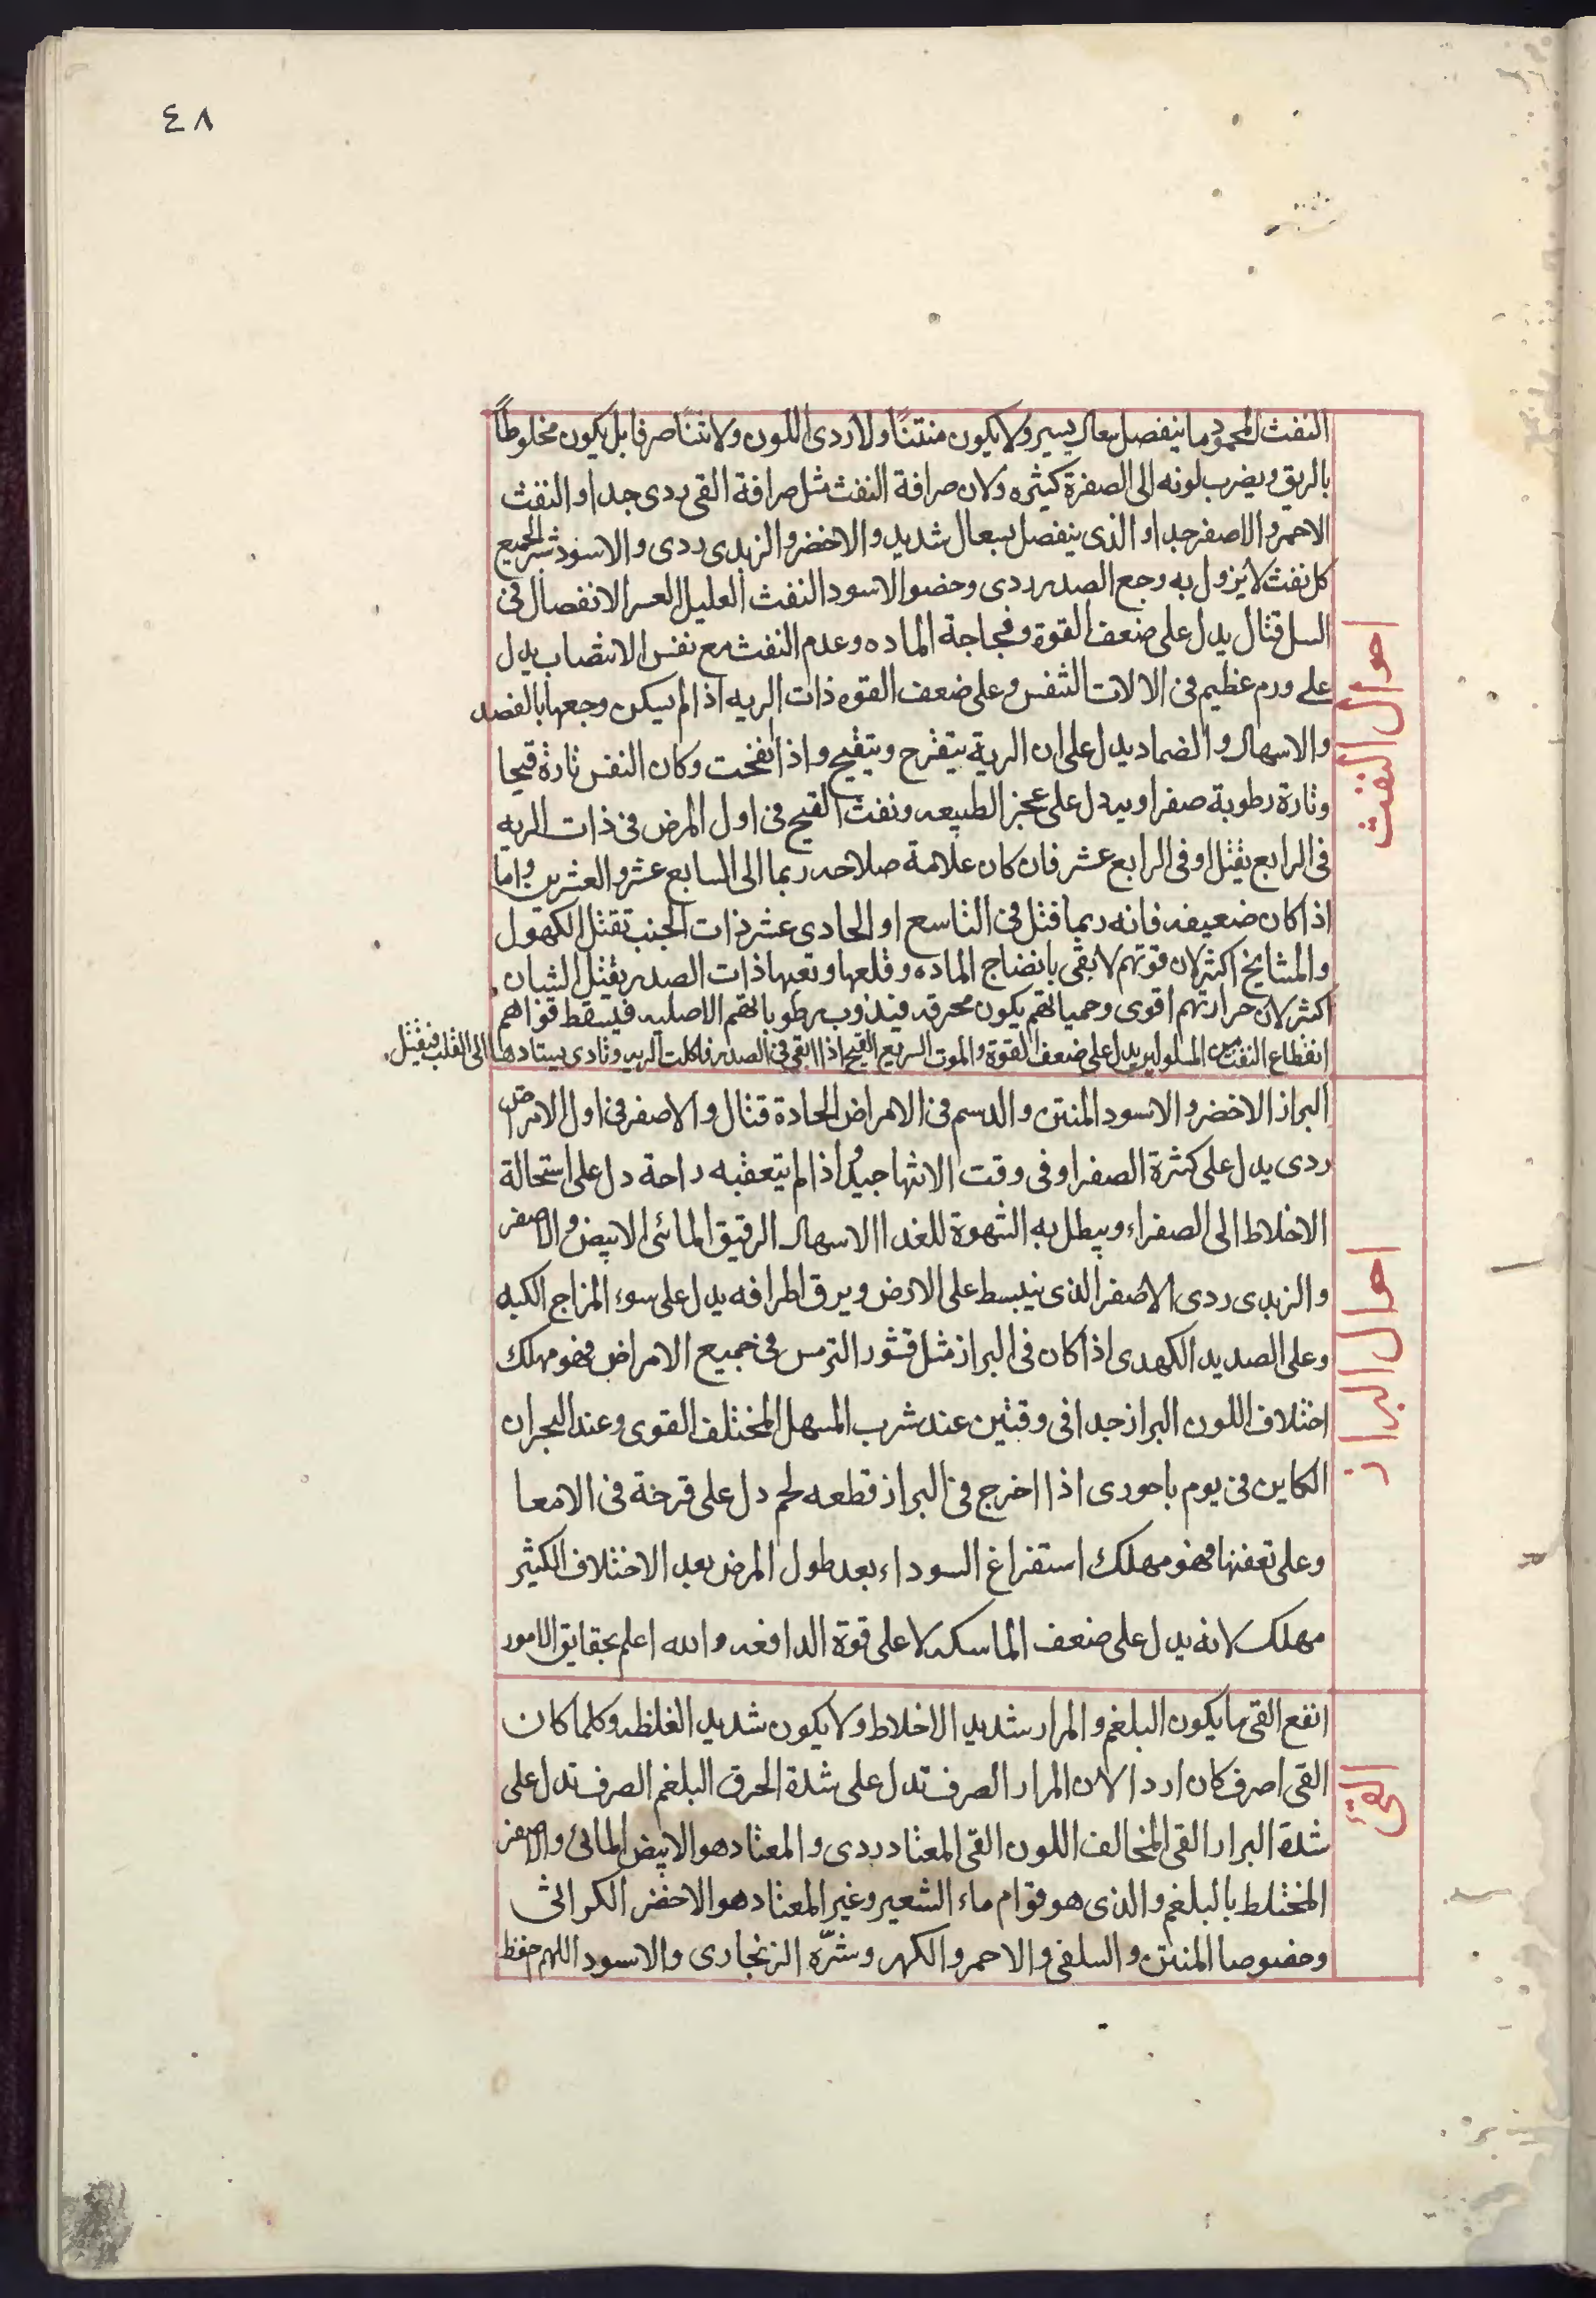 ٤٨
احوال النفث
النفث المحمود ما ينفصل بسعال يسير ولا يكون منتنًا ولا ردى اللون ولا نتنًا صرفا بل يكون مخلوطًا
بالريق ويضرب لونه الى الصفرة كيثره ولان صرافة النفث مثل صرافة القى ردى جدا والنفث
الاحمر والاصفر جدا والذى ينفصل بسعال شديد والاخضر والزبدى ردى والاسود شر الجميع
كل نفث لا يزول به وجع الصدر ردى وخصوا الاسود النفث العليل العسر الانفصال فى
السل قتال يدل على ضعف القوة وفجاجة الماده وعدم النفث مع نفس الانتصاب يدل
على ورم عظيم فى الالات التنفس وعلى ضعف القوه ذات الريه اذا لم يسكن وجعها بالفصد
والاسهال والضماد يدل على ان الرية يتقرح ويتقيح واذا انفخت وكان النفس تارة قيحا
وتارة رطوبة صفرا ويدل على عجز الطبيعه ونفث القيح فى اول المرض فى ذات الريه
فى الرابع يقتل او فى الرابع عشر فان كان علامة صلاحه ربما الى السابع عشر والعشرين واما
اذا كان ضعيفه فانه ربما قتل فى التاسع او الحادى عشر ذات الجنب تقتل الكهول
والمشايخ اكثر لان قوتهم لا يقى بانضاج الماده وقلعها وتعبها ذات الصدر يقتل الشبان
اكثر لان حرارتهم اقوى وحمياتهم يكون محرقه فيذوب رطوباتهم الاصليه فيسقط قواهم
انقطاع النفث من المسلولين يدل على ضعف القوة والموت السريع القيح اذا ابقى فى الصدر فاكلت الريه وتادى بيتادها الى القلب فيقتل
احوال البراز
البراز الاخضر والاسود المنتن والدسم فى الامراض الحادة قتال والاصفر فى اول الامرض
ردى يدل على كثرة الصفرا وفى وقت الانتها جيدٌ اذا لم يتعقبه راحة دل على استحالة
الاخلاط الى الصفراء ويبطل به الشهوة للغدا الاسهال الرقيق المائى الابيض والاصفر
والزبدى ردى الاصفر الذى ينبسط على الارض ويرق اطرافه يدل على سوء المزاج الكبه
وعلى الصديد الكهدى اذا كان فى البراز مثل قشور الترمس فى جميع الامراض فهو مهلك
اختلاف اللون البراز جدا فى وقتين عند شرب المسهل المختلف القوى وعند البحران
الكاين فى يوم باحورى اذا اخرج فى البراز قطعه لحم دل على قرحة فى الامعا
وعلى تعفنها فهو مهلك استفراغ السوداء بعد طول المرض بعد الاختلاف الكثير
مهلك لانه يدل على ضعف الماسكه لا على قوة الدافعه والله اعلم بحقايق الامور
القئ
انفع القى ما يكون البلغم والمرار شديد الاخلاط ولا يكون شديد الغلظه وكلما كان
القى اصرف كان اردا لان المرار الصرف تدل على شدة الحرق البلغم الصرف تدل على
شدة البرار القى المخالف اللون القى المعتاد ردى والمعتاد هو الابيض المائى والاصفر
المختلط بالبلغم والذى هو قوام ماء الشعير وغير المعتاد هو الاخضر الكراثى
وخصوصا المنتن والسلقى والاحمر والكهر وشرّه الزنجارى والاسود اللهم حفظ